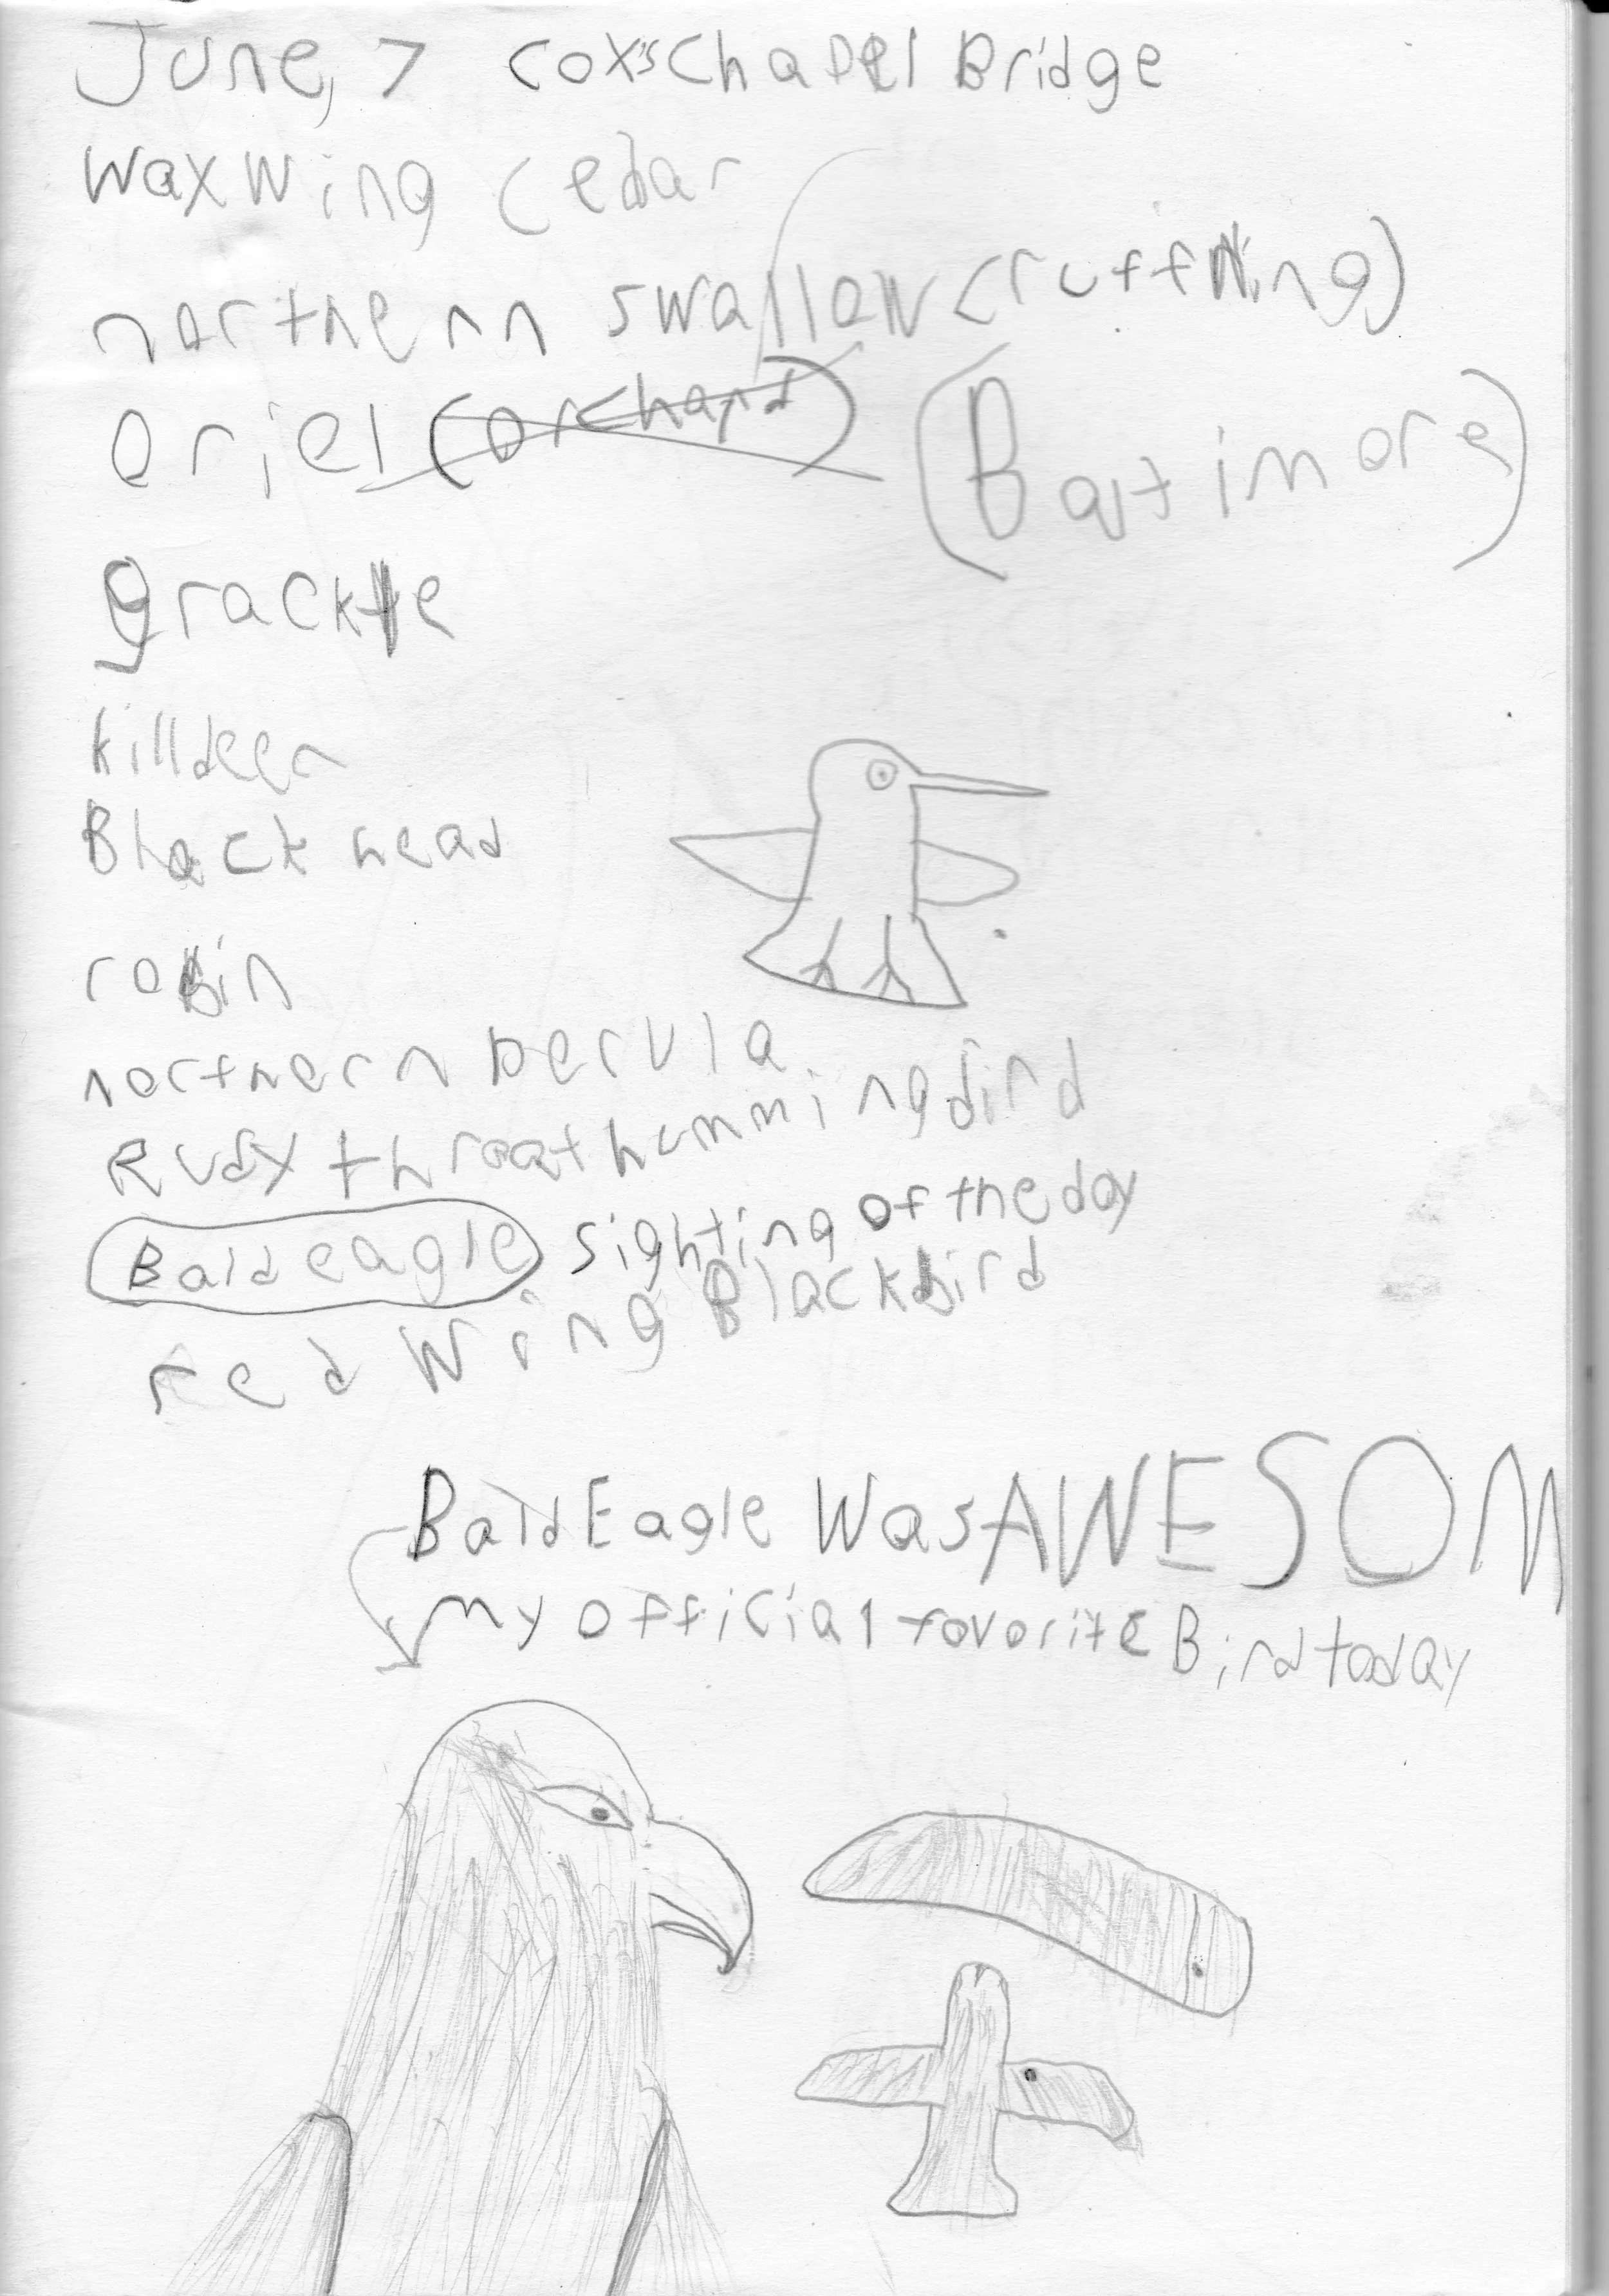 June, 7 Cox's Chapel Bridge
Waxwing Cedar
northern swallow (ruff wing)
oriel (orchard) (Baltimore)
grackle
killdeer
Black head
robin
northern perula
Rudy throat hummingbird
Bald eagle sighting of the day
red wing Blackbird
Bald Eagle Was AWESOM
My official favorite Bird today